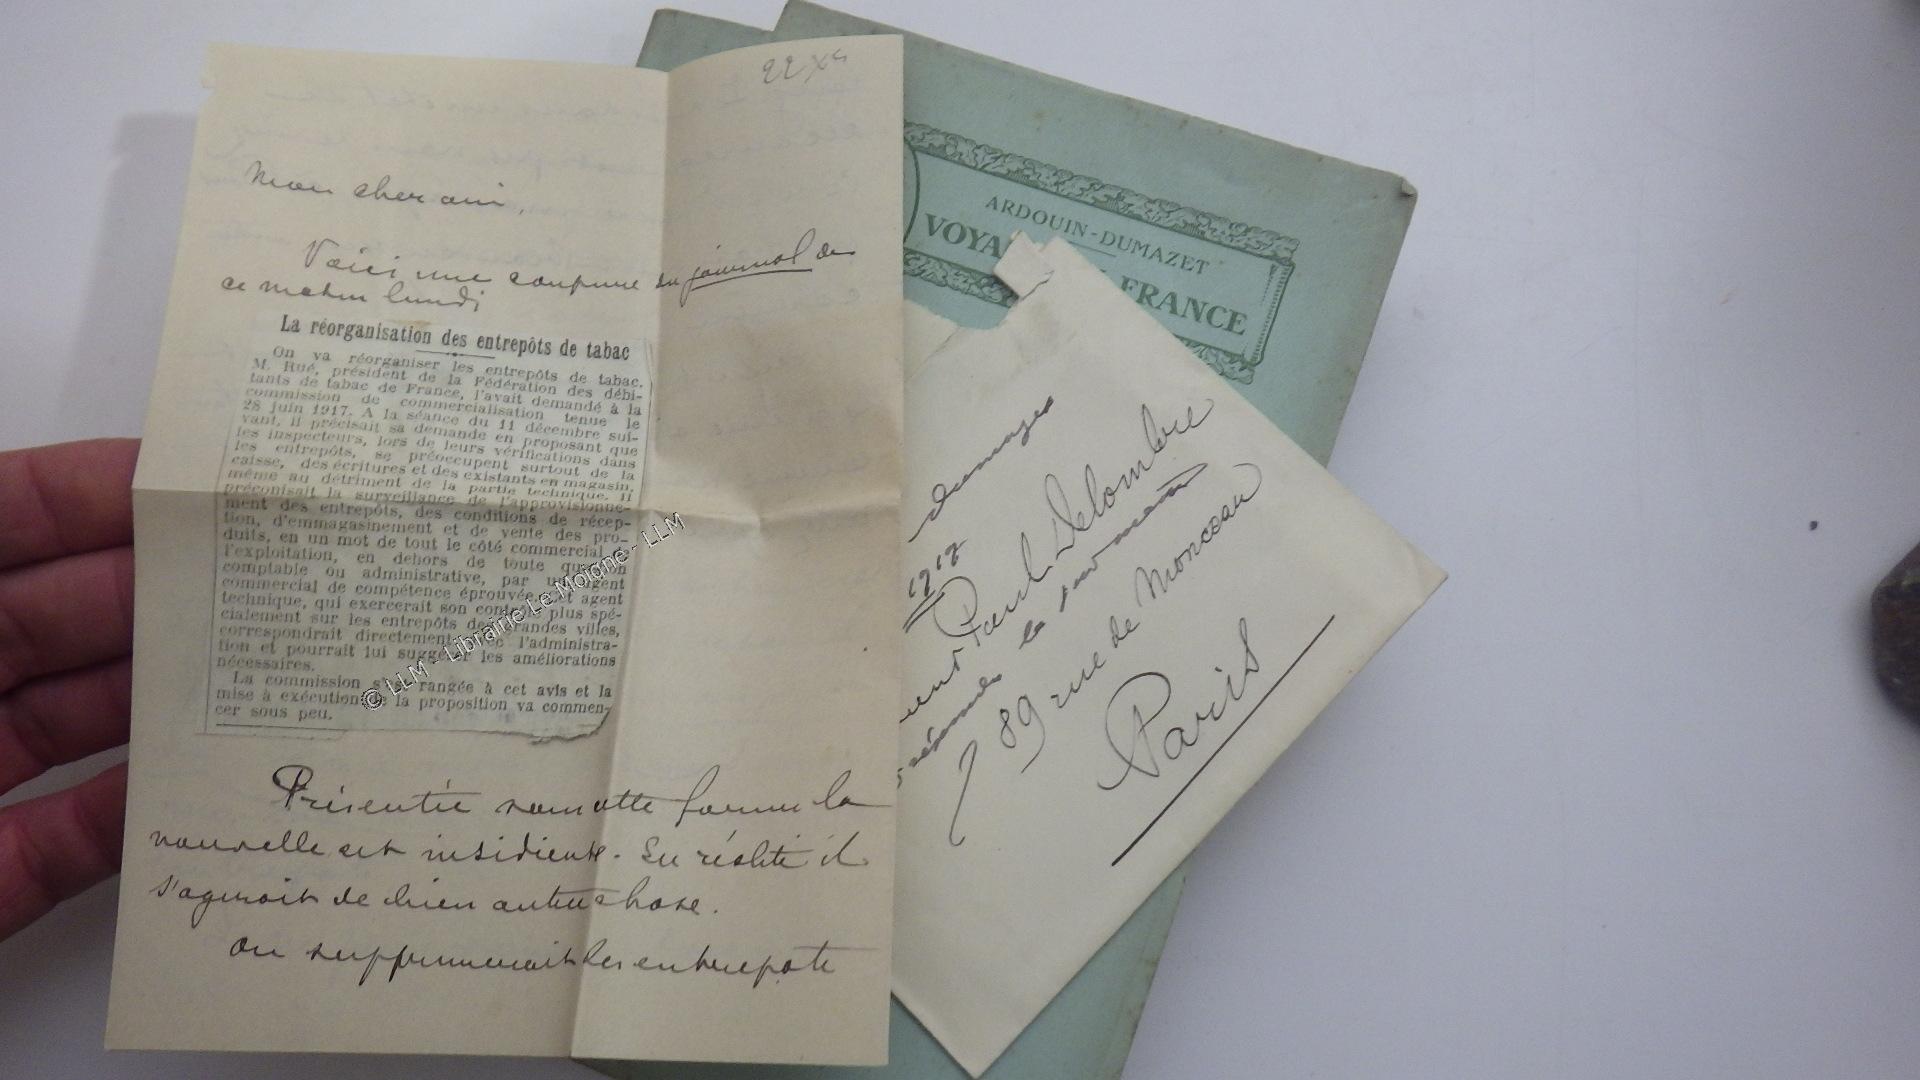 22 Xs
Mon cher ami,
Voici une coupure du journal de
ce matin lundi
La réorganisation des entrepôts de tabac
On va réorganiser les entrepôts de tabac.
M. Rué, président de la Fédération des débi-
tants de tabac de France, l'avait demandé à la
commission de commercialisation tenue le
28 juin 1917. A la séance du 11 décembre sui-
vant, il précisait sa demande en proposant que
les inspecteurs, lors de leurs vérifications dans
les entrepôts, se préoccupent surtout de la
caisse, des écritures et des existants en magasin,
même au détriment de la partie technique. Il
préconisait la surveillance de l'approvisionne-
ment des entrepôts, des conditions de récep-
tion, d'emmagasinement et de vente des pro-
duits, en un mot de tout le côté commercial
l'exploitation, en dehors de toute question
comptable ou administrative, par un agent
commercial de compétence éprouvée. Cet agent
technique, qui exercerait son contrôle plus spé-
cialement sur les entrepôts des grandes villes,
correspondrait directement avec l'administra-
tion et pourrait lui suggérer les améliorations
nécessaires.
La commission s'est rangée à cet avis et la
mise à exécution de la proposition va commen-
cer sous peu.
Présentée sous cette forme la
nouvelle est insidieuse. En réalité il
s'agirait de bien autre chose.
on supprimerait les entrepots
© LLM - Librairie Le Moigne - LLM
ARDOUIN-DUMAZET
VOYA FRANCE
1917
Paul Delombre
89 rue de Monceau
Paris